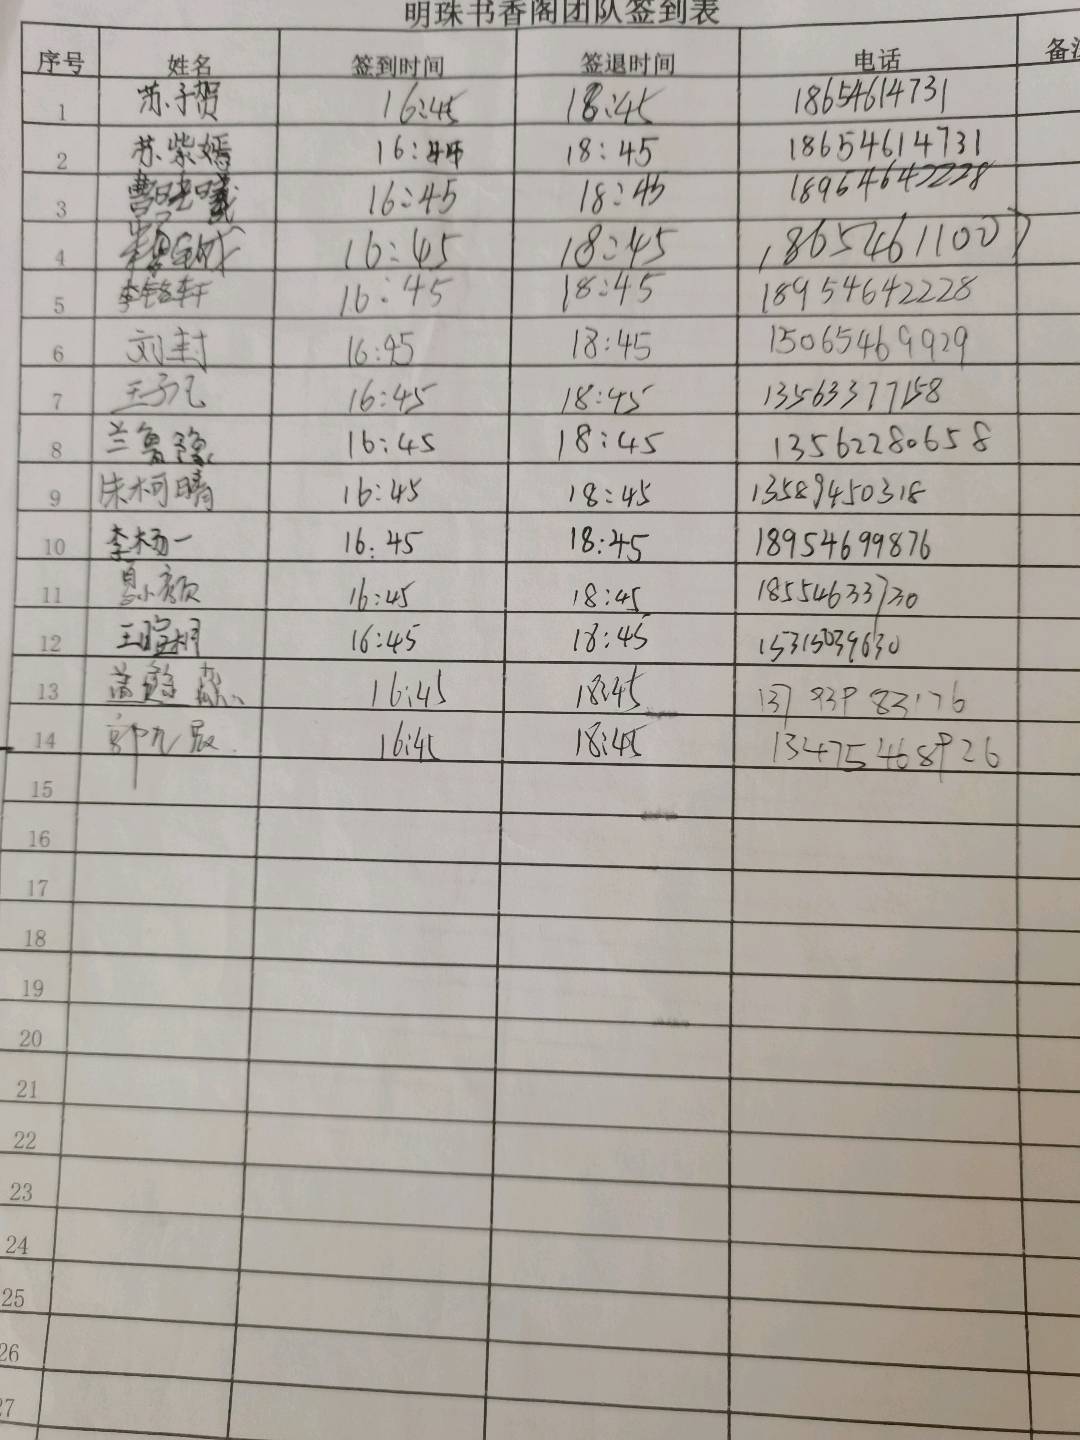 明珠书香阁团队签到表
序号 姓名 签到时间 签退时间 电话 备注
1 苏子贺 16:45 18:45 18654614731
2 苏紫嫣 16:45 18:45 18654614731
3 曹 16:45 18:45 18954642228
4 16:45 18:45 18654611007
5 李铭轩 16:45 18:45 18954642228
6 刘封 16:45 18:45 15065469929
7 王子凡 16:45 18:45 13563377158
8 兰鲁豫 16:45 18:45 13562280658
9 朱柯晴 16:45 18:45 13589450318
10 李杨一 16:45 18:45 18954699876
11 颜 16:45 18:45 18554633730
12 王暄桐 16:45 18:45 15315039630
13 16:45 18:45 13793983176
14 郭九辰 16:45 18:45 13475468926
15
16
17
18
19
20
21
22
23
24
25
26
27